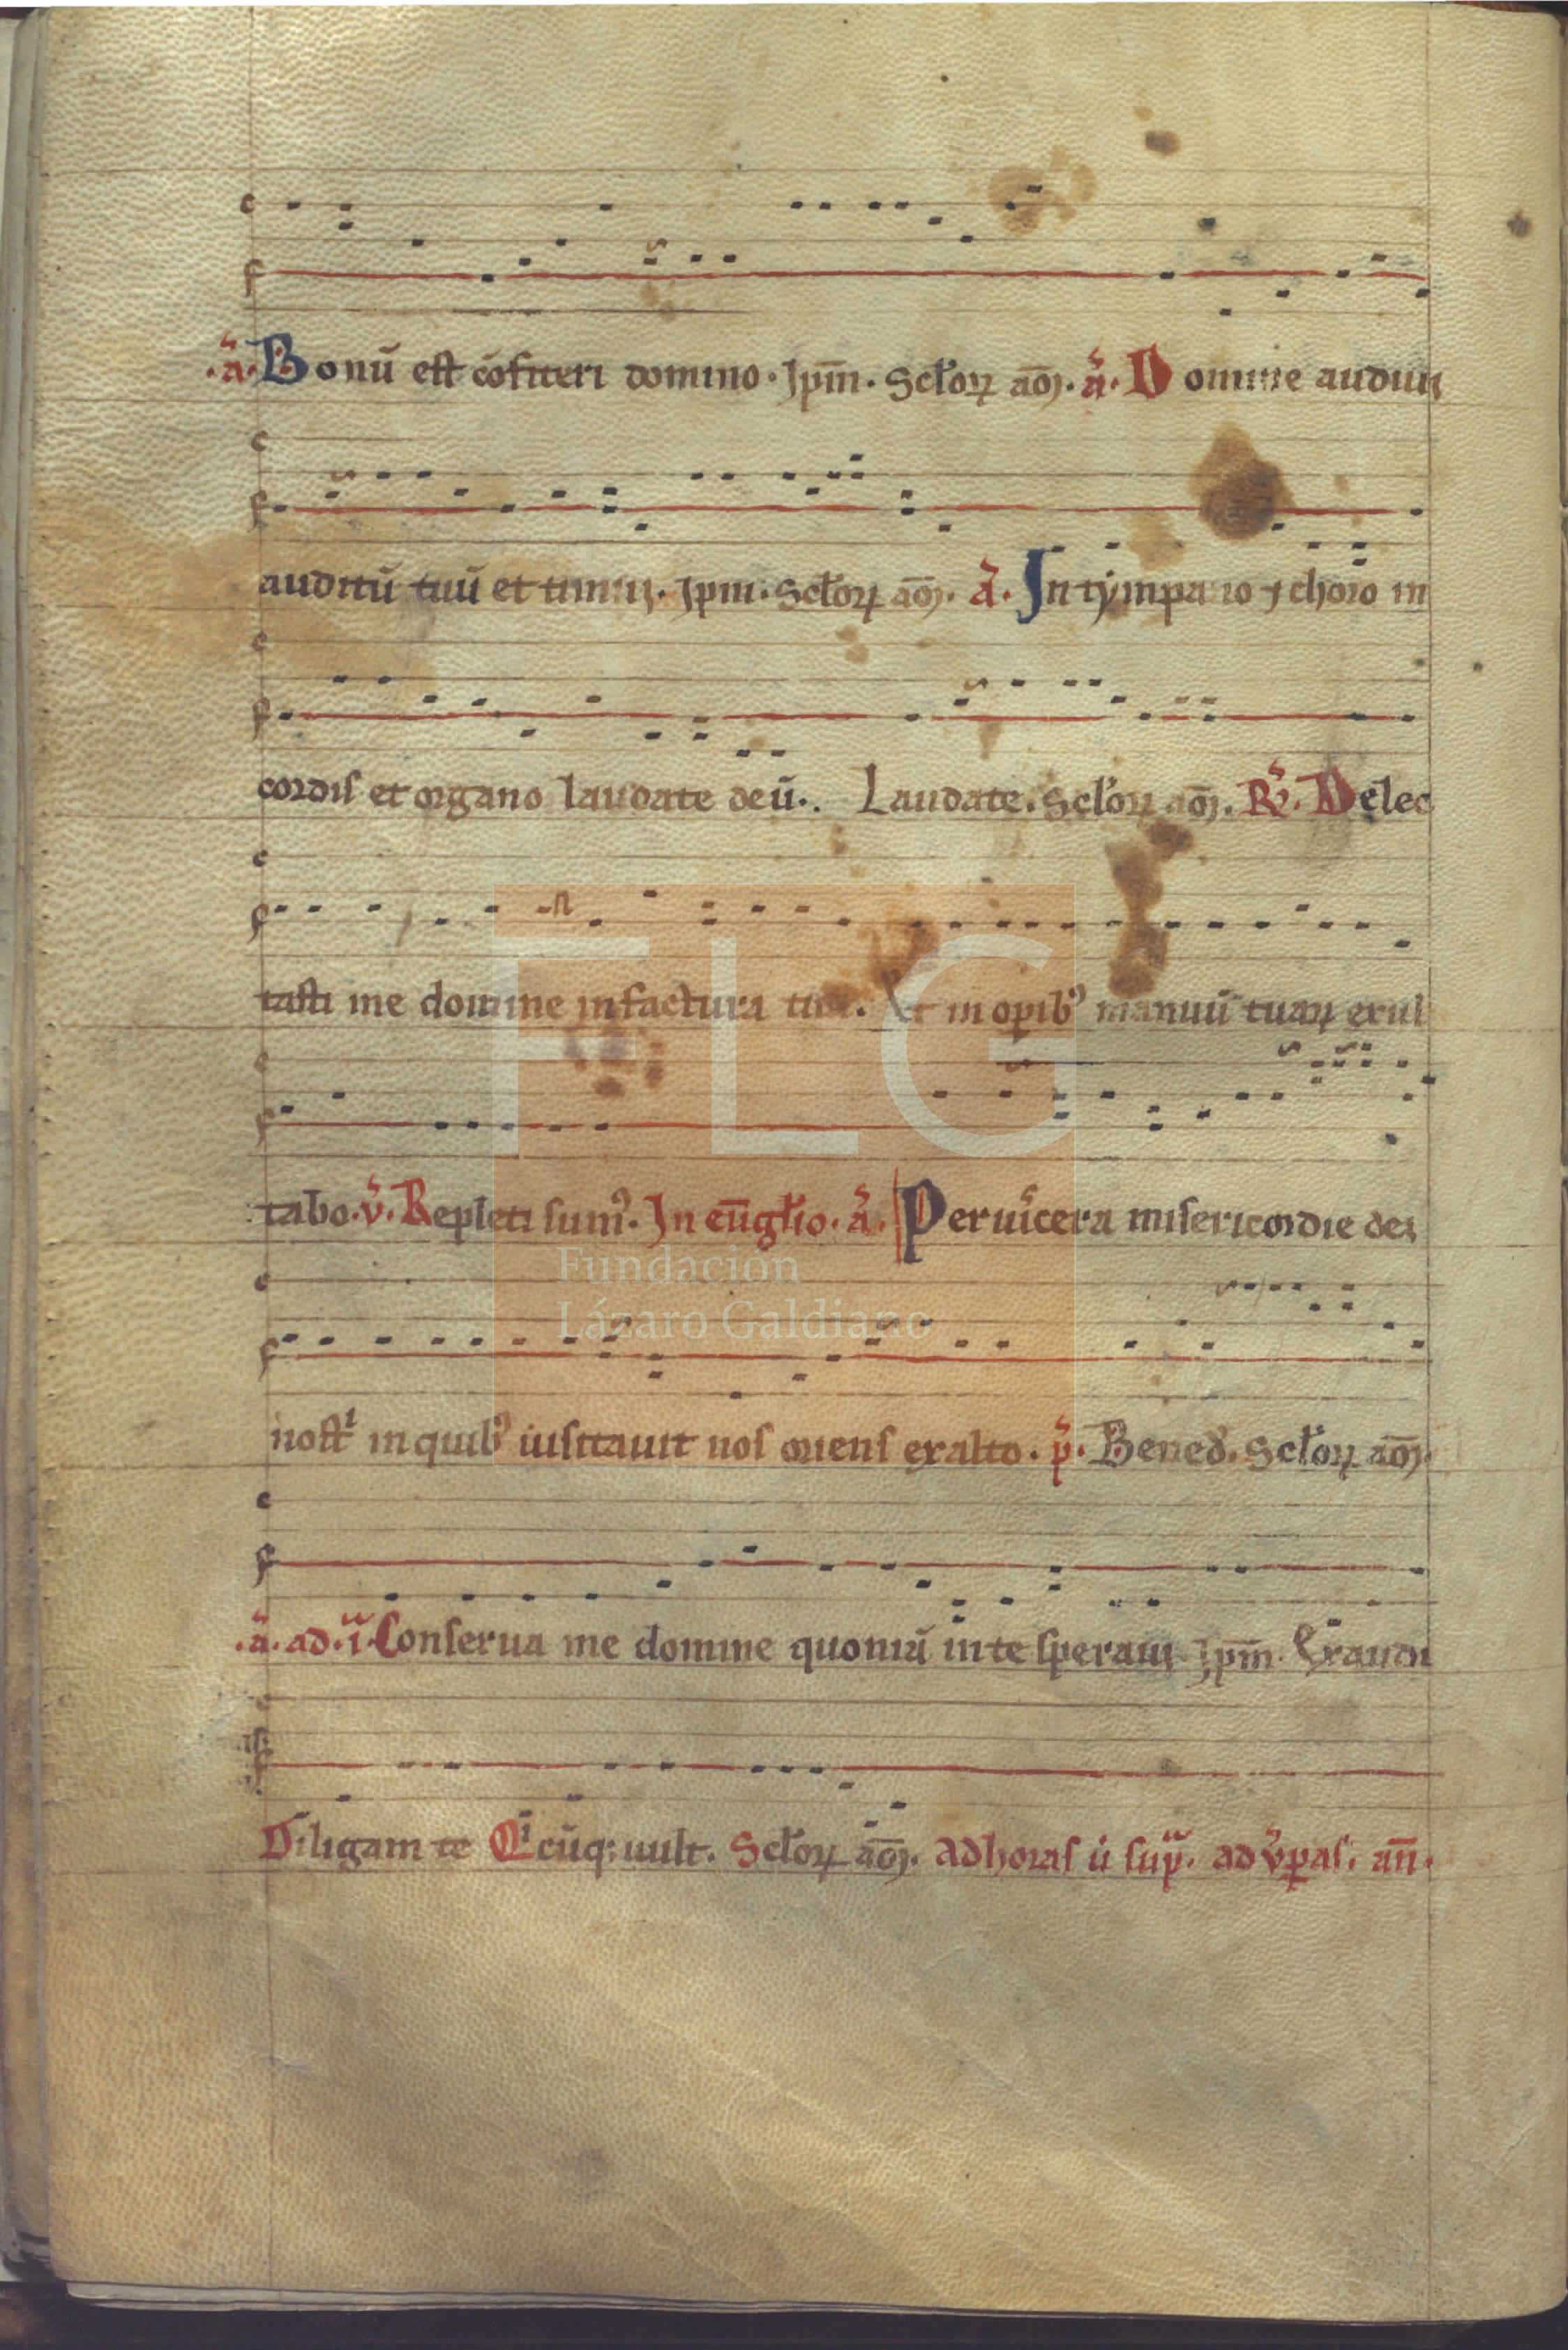 .ã. Bonū est cōfiteri domino. Ip̄m. Sctor̄ꝝ am̄. ã. Domine audiui
auditū tuū et timui. Ip̄m. Sctorꝝ am̄. ã. In tympano ⁊ choro in
cordis et organo laudate deū.. Laudate. Sctorꝝ am̄. R̃. Delec
tasti me domine in factura tua. Et in opib⁹ manuū tuaꝝ exul
tabo. v̄. Repleti sum⁹. In eu̅gl̄io. ã. Per uiscera misericordie dei
nostⁱ in quib⁹ uisitauit nos oriens ex alto. p̄. Bened̄. Sctorꝝ am̄.
.ã. ad. i. Conserua me domine quoniā in te speraui. Ip̄m. Exaudi
Diligam te Qⁱcūq; uult. Sctorꝝ am̄. ad horas ú sup̄. ad v̄p̄as. an̄.
FLG
Fundación
Lázaro Galdiano